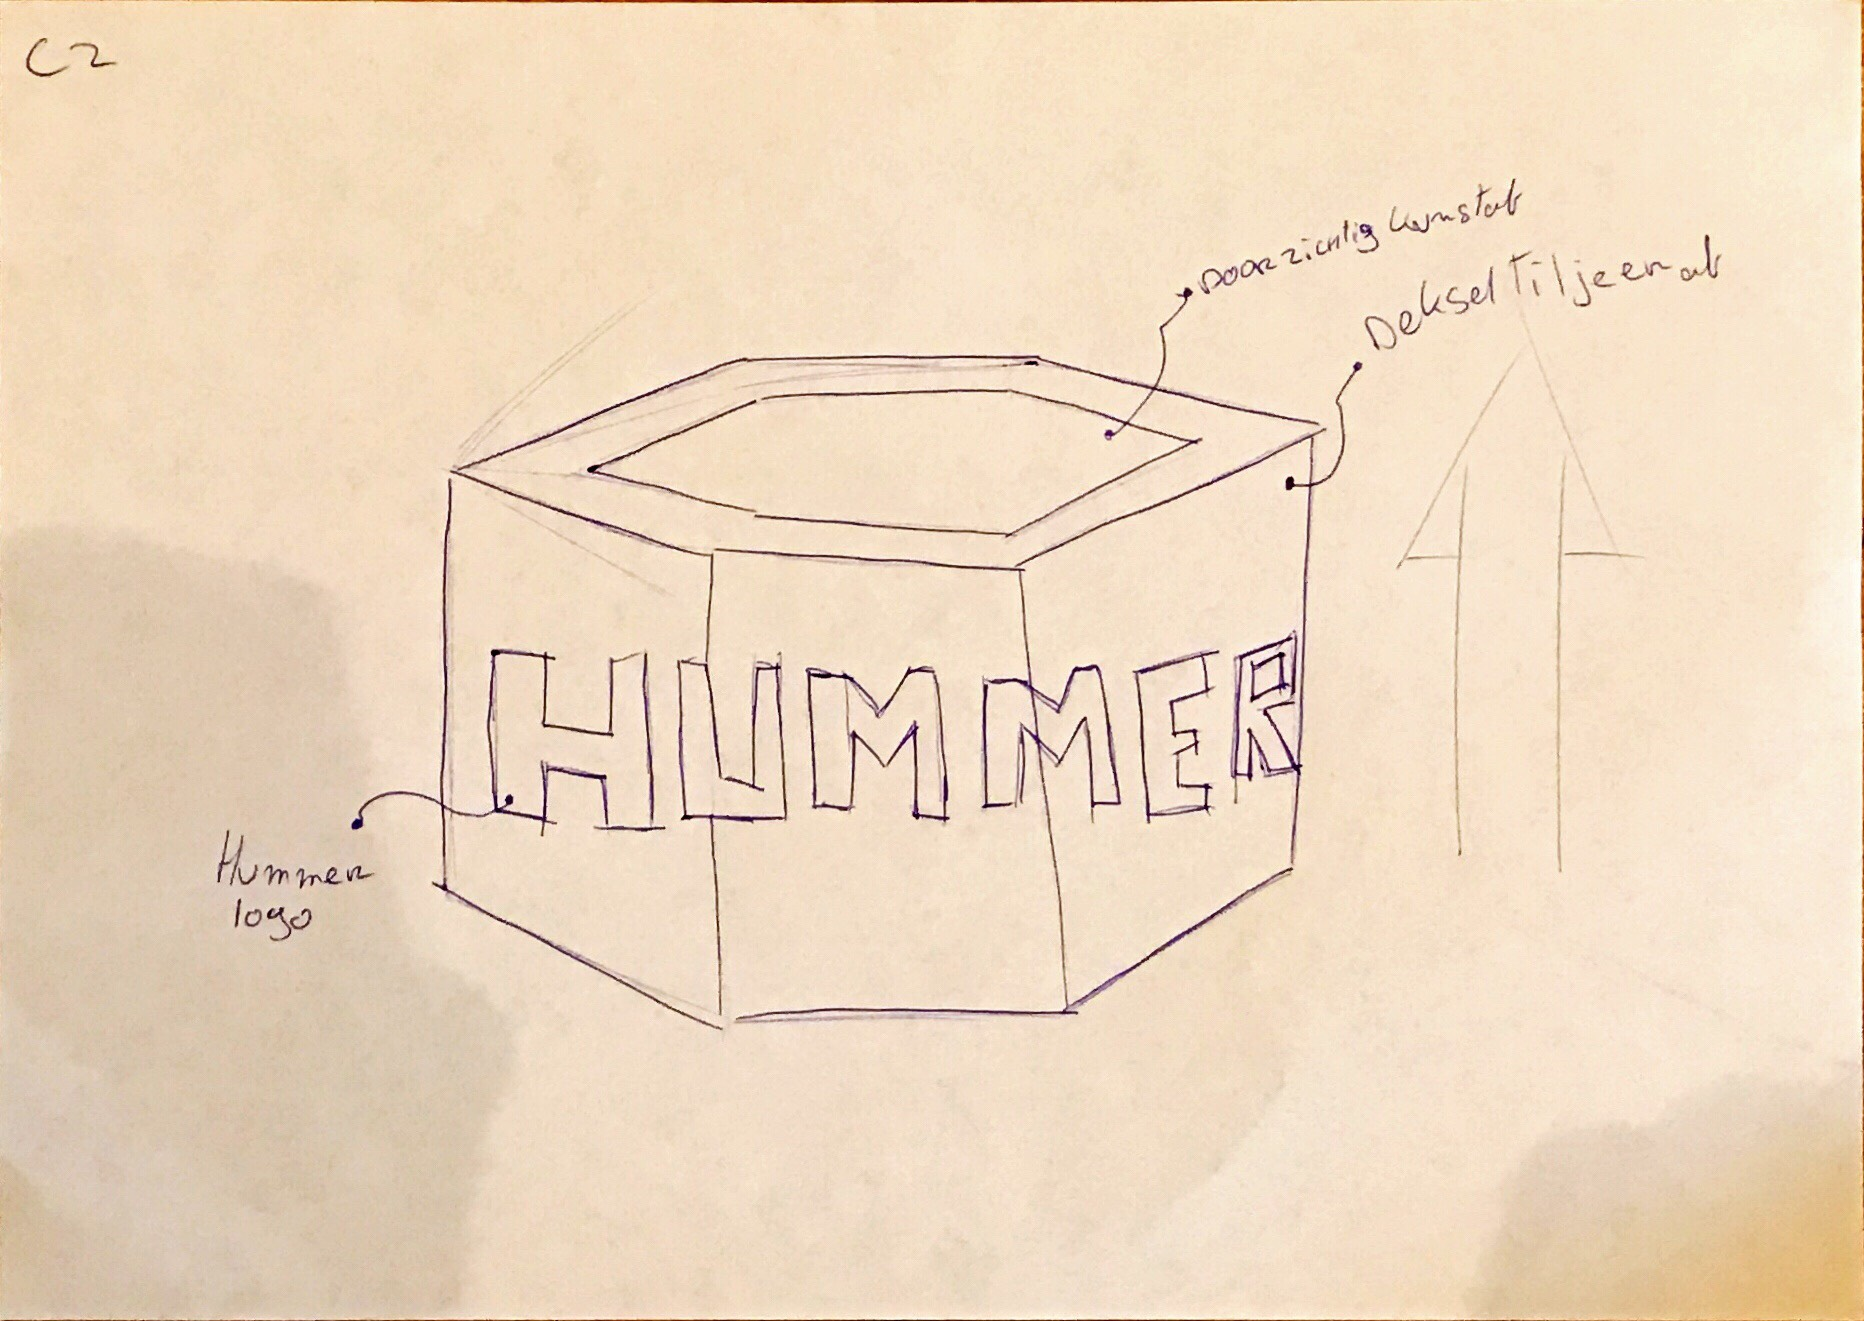 C2
Doorzichtig kunstof
Deksel Til je er af
HUMMER
Hummer
logo